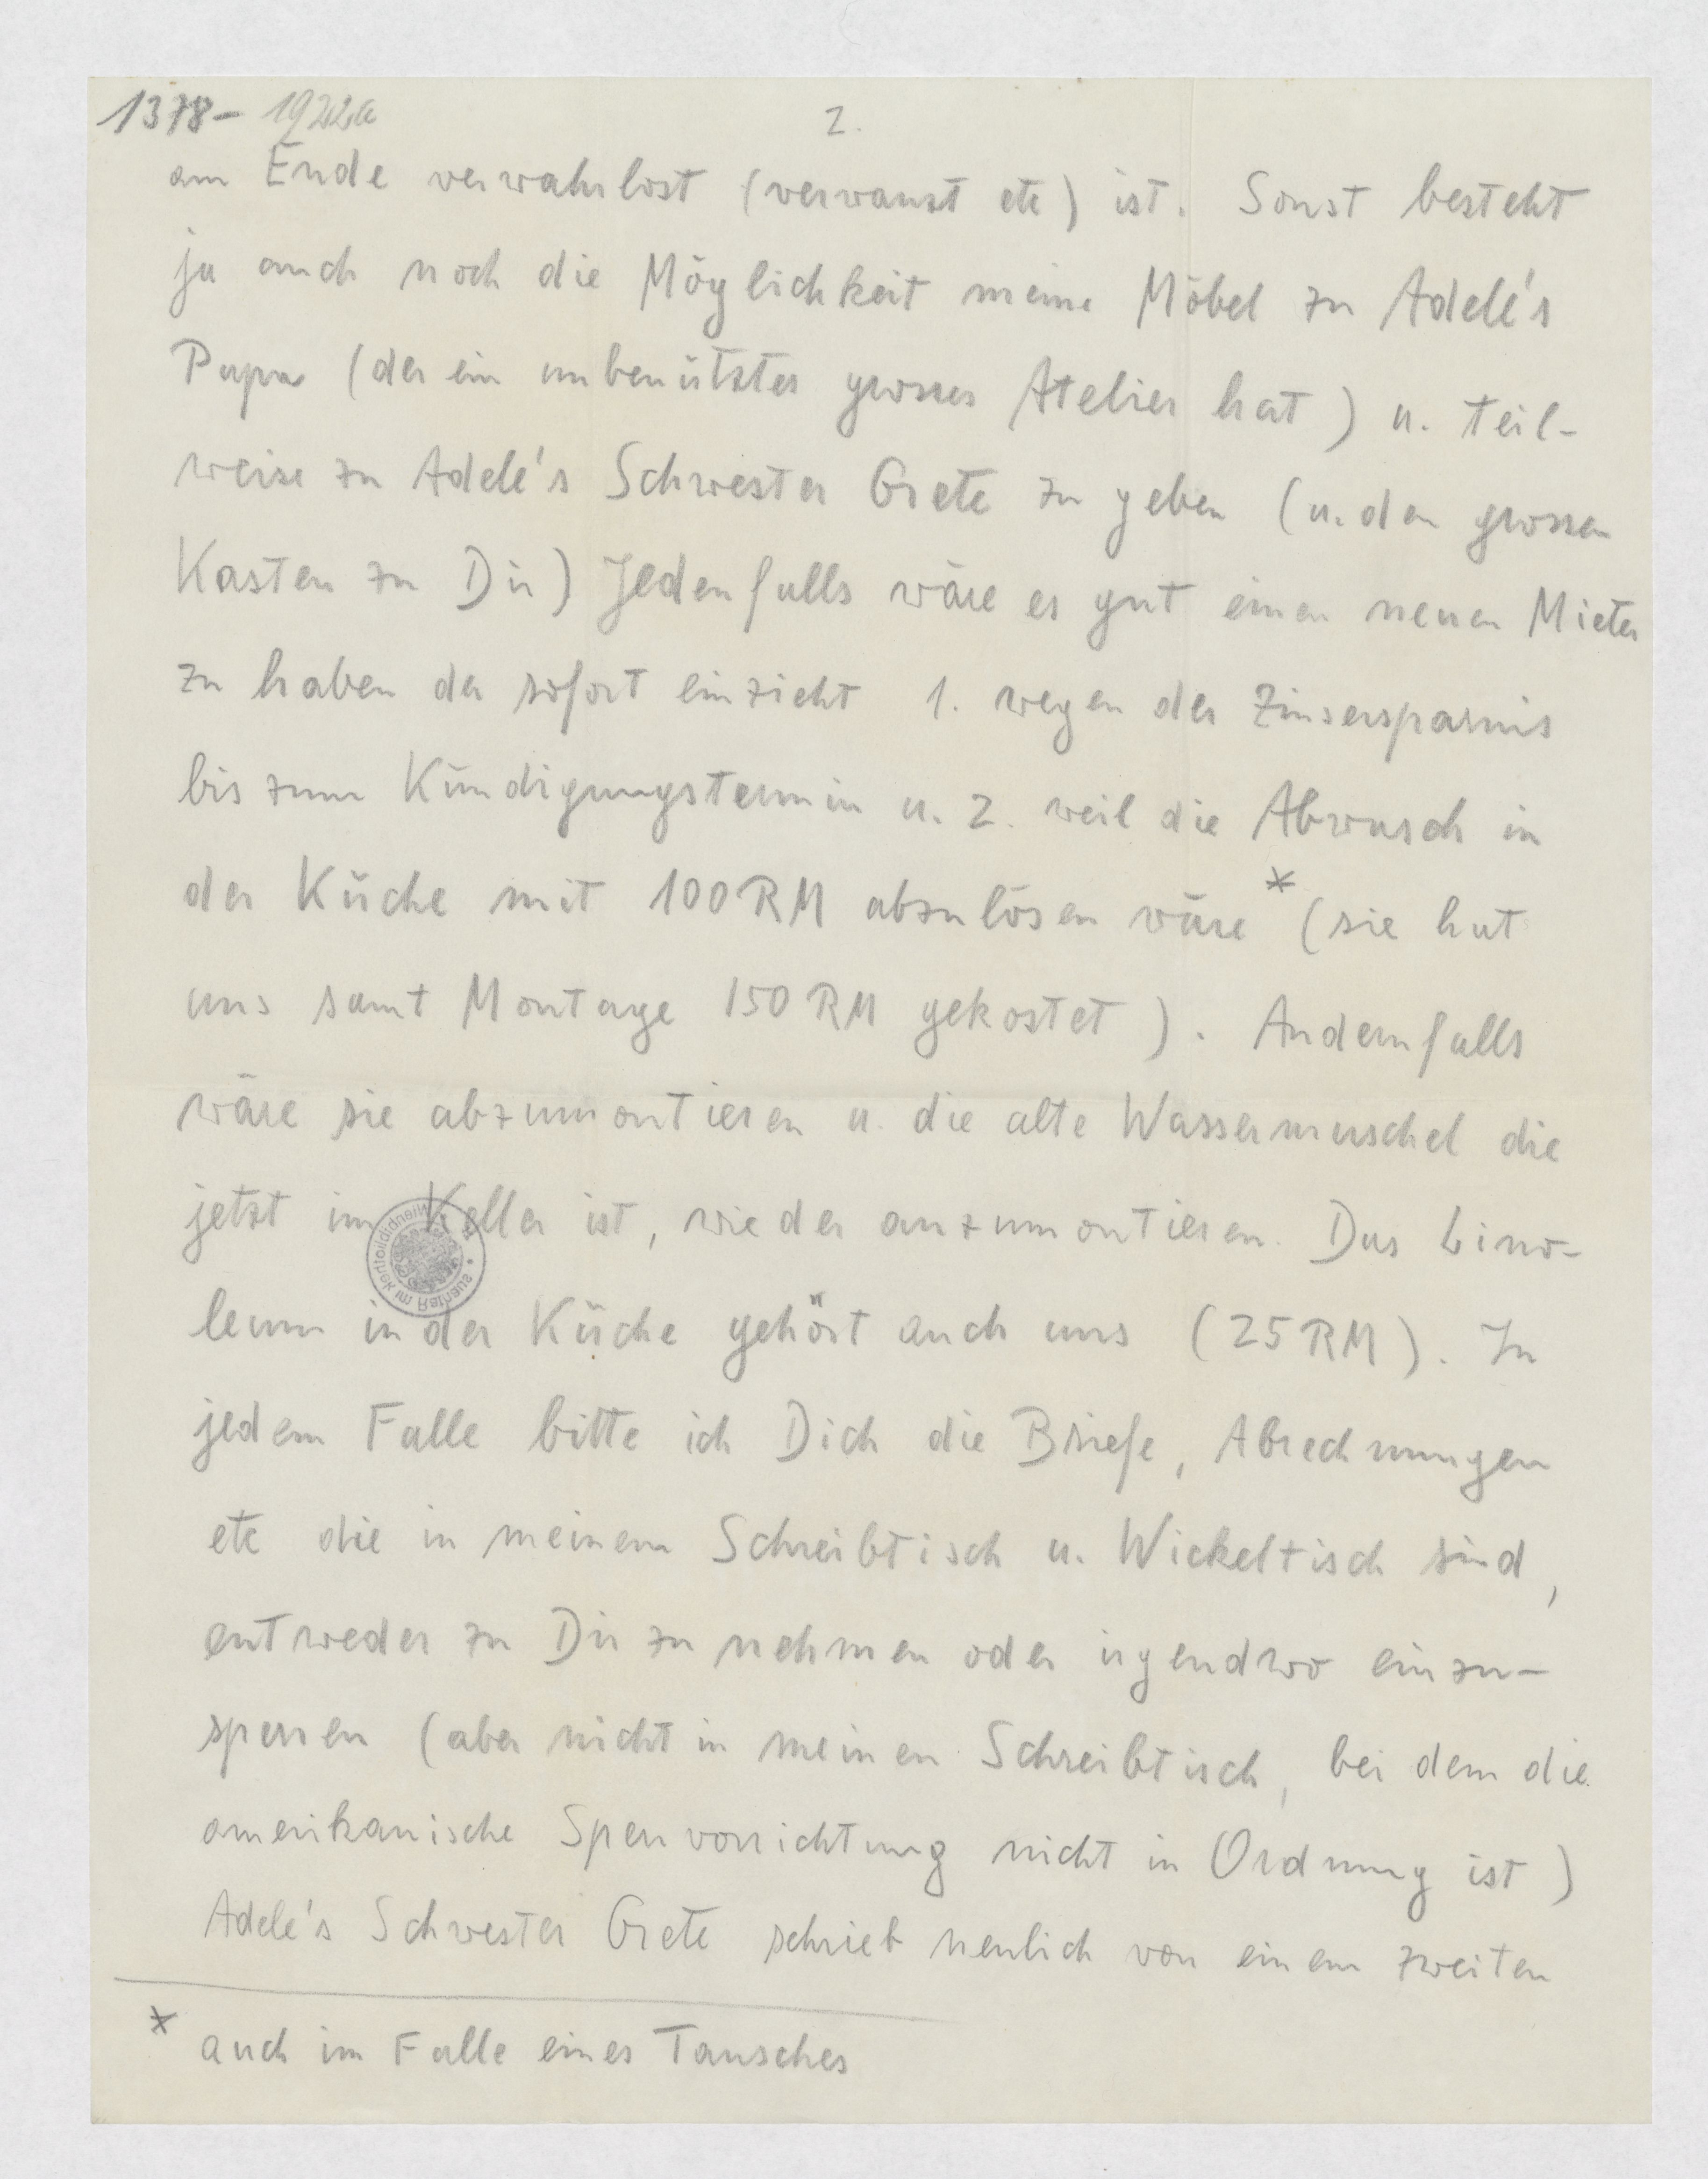 1378- 1922a
2.
am Ende verwahrlost (verwanzt etc) ist. Sonst besteht
ja auch noch die Möglichkeit meine Möbel zu Adele's
Papa (der ein unbenütztes grosses Atelier hat) u. teil-
weise zu Adele's Schwester Grete zu geben (u. den grossen
Kasten zu Dir) Jedenfalls wäre es gut einen neuen Mieter
zu haben der sofort einzieht 1. wegen der Zinsersparnis
bis zum Kündigungstermin u. 2. weil die Abwasch in
der Küche mit 100 RM abzulösen wäre* (sie hat
uns samt Montage 150 RM gekostet). Andernfalls
wäre sie abzumontieren u. die alte Wassermuschel die
jetzt im Keller ist, wieder anzumontieren. Das Lino-
leum in der Küche gehört auch uns (25 RM). In
jedem Falle bitte ich Dich die Briefe, Abrechnungen
etc die in meinem Schreibtisch u. Wickeltisch sind,
entweder zu Dir zu nehmen oder irgendwo einzu-
sperren (aber nicht in meinen Schreibtisch, bei dem die
amerikanische Sperrvorrichtung nicht in Ordnung ist)
Adele's Schwester Grete schrieb neulich von einem zweiten
* auch im Falle eines Tausches
Wienbibliothek im Rathaus